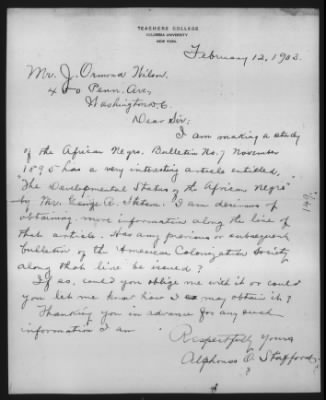 TEACHERS COLLEGE
COLUMBIA UNIVERSITY
NEW YORK.
February 12, 1903.
Mr. J. Ormond Wilson,
450 Penn. Ave,
Washington D.C.
Dear Sir;
I am making a study
of the African Negro. Bulletin No. 7 November
1895 has a very interesting article entitled,
"The Developmental Status of the African Negro"
by Mr. George R. Stetson. I am desirous of
obtaining more information along the line of
that article. Has any previous or subsequent
bulletin of the American Colonization Society
along that line be issued?
If so, could you oblige me with it or could
you let me know how I may obtain it?
Thanking you in advance for any such
information I am
Respectfully Yours
Alphonso O. Stafford.